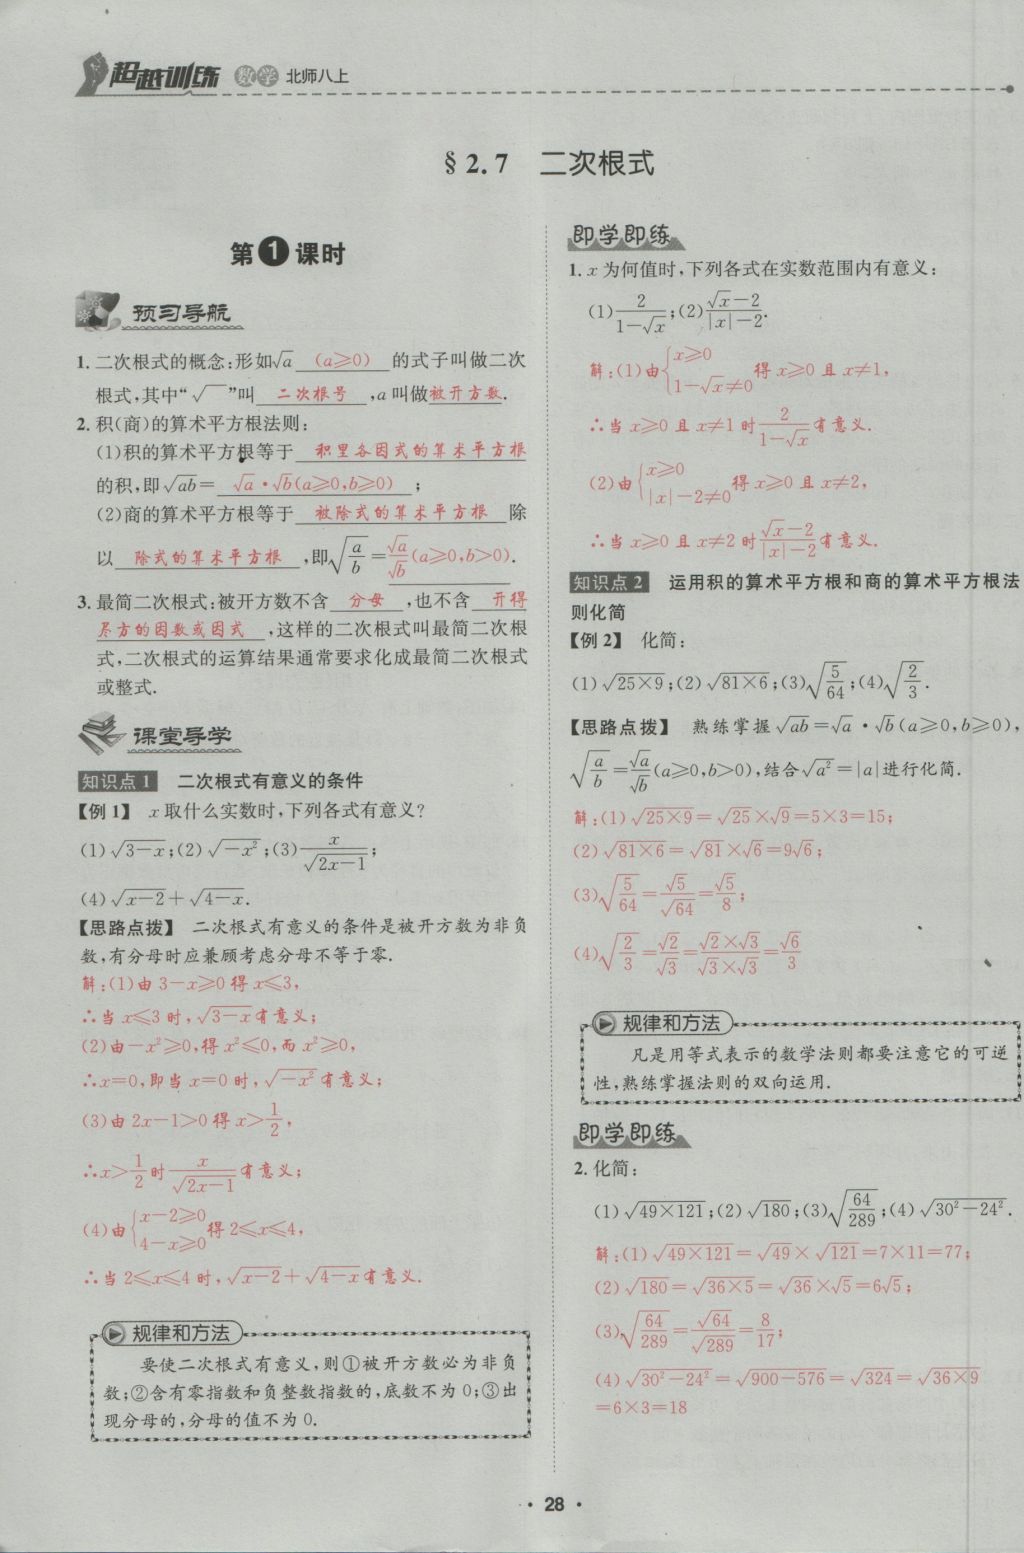 超越训练 数学 北师八上
§2.7 二次根式
第1课时
预习导航
1. 二次根式的概念:形如√a (a≥0) 的式子叫做二次
根式,其中“√ ”叫 二次根号 ,a叫做被开方数.
2. 积(商)的算术平方根法则:
(1)积的算术平方根等于 积里各因式的算术平方根
的积,即√(ab)= √a·√b(a≥0,b≥0) ;
(2)商的算术平方根等于 被除式的算术平方根 除
以 除式的算术平方根 ,即√(a/b)=√a/√b(a≥0,b>0).
3. 最简二次根式:被开方数不含 分母 ,也不含 开得
尽方的因数或因式 ,这样的二次根式叫最简二次根
式,二次根式的运算结果通常要求化成最简二次根式
或整式.
课堂导学
知识点1 二次根式有意义的条件
【例1】 x取什么实数时,下列各式有意义?
(1)√(3-x);(2)√(-x²);(3)x/√(2x-1);
(4)√(x-2)+√(4-x).
【思路点拨】 二次根式有意义的条件是被开方数为非负
数,有分母时应兼顾考虑分母不等于零.
解:(1)由3-x≥0得x≤3,
∴当x≤3时,√(3-x)有意义;
(2)由-x²≥0,得x²≤0,而x²≥0,
∴x=0,即当x=0时,√(-x²)有意义;
(3)由2x-1>0得x>1/2,
∴x>1/2时x/√(2x-1)有意义;
(4)由{x-2≥0 4-x≥0得2≤x≤4,
∴当2≤x≤4时,√(x-2)+√(4-x)有意义.
规律和方法
要使二次根式有意义,则①被开方数必为非负
数;②含有零指数和负整数指数的,底数不为0;③出
现分母的,分母的值不为0.
即学即练
1. x为何值时,下列各式在实数范围内有意义:
(1)2/(1-√x);(2)(√x-2)/(|x|-2).
解:(1)由{x≥0 1-√x≠0得x≥0且x≠1,
∴当x≥0且x≠1时2/(1-√x)有意义.
(2)由{x≥0 |x|-2≠0得x≥0且x≠2,
∴当x≥0且x≠2时(√x-2)/(|x|-2)有意义.
知识点2 运用积的算术平方根和商的算术平方根法
则化简
【例2】 化简:
(1)√(25×9);(2)√(81×6);(3)√(5/64);(4)√(2/3).
【思路点拨】 熟练掌握√(ab)=√a·√b(a≥0,b≥0),
√(a/b)=√a/√b(a≥0,b>0),结合√(a²)=|a|进行化简.
解:(1)√(25×9)=√25×√9=5×3=15;
(2)√(81×6)=√81×√6=9√6;
(3)√(5/64)=√5/√64=√5/8;
(4)√(2/3)=√2/√3=(√2×√3)/(√3×√3)=√6/3
规律和方法
凡是用等式表示的数学法则都要注意它的可逆
性,熟练掌握法则的双向运用.
即学即练
2. 化简:
(1)√(49×121);(2)√180;(3)√(64/289);(4)√(30²-24²).
解:(1)√(49×121)=√49×√121=7×11=77;
(2)√180=√(36×5)=√36×√5=6√5;
(3)√(64/289)=√64/√289=8/17;
(4)√(30²-24²)=√(900-576)=√324=√(36×9)
=6×3=18
· 28 ·